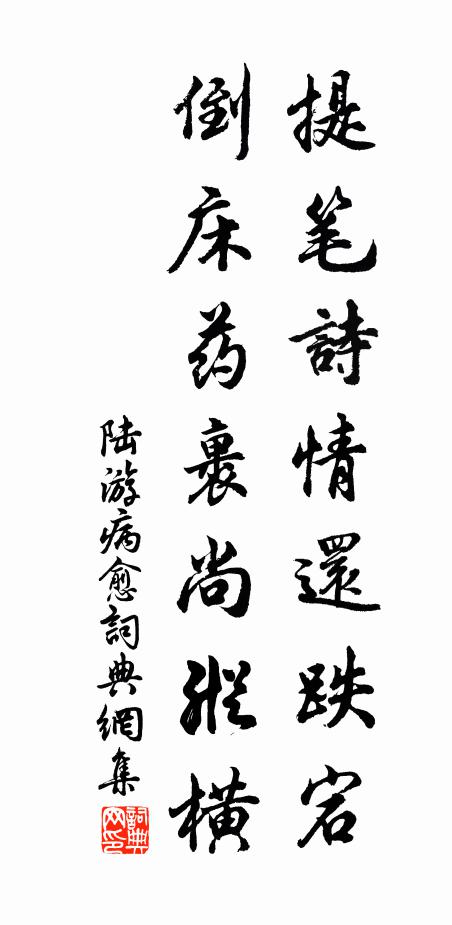 提笔詩情還跌宕
倒床药裹尚縱橫
陆游病愈詞典網集
詞典
网印